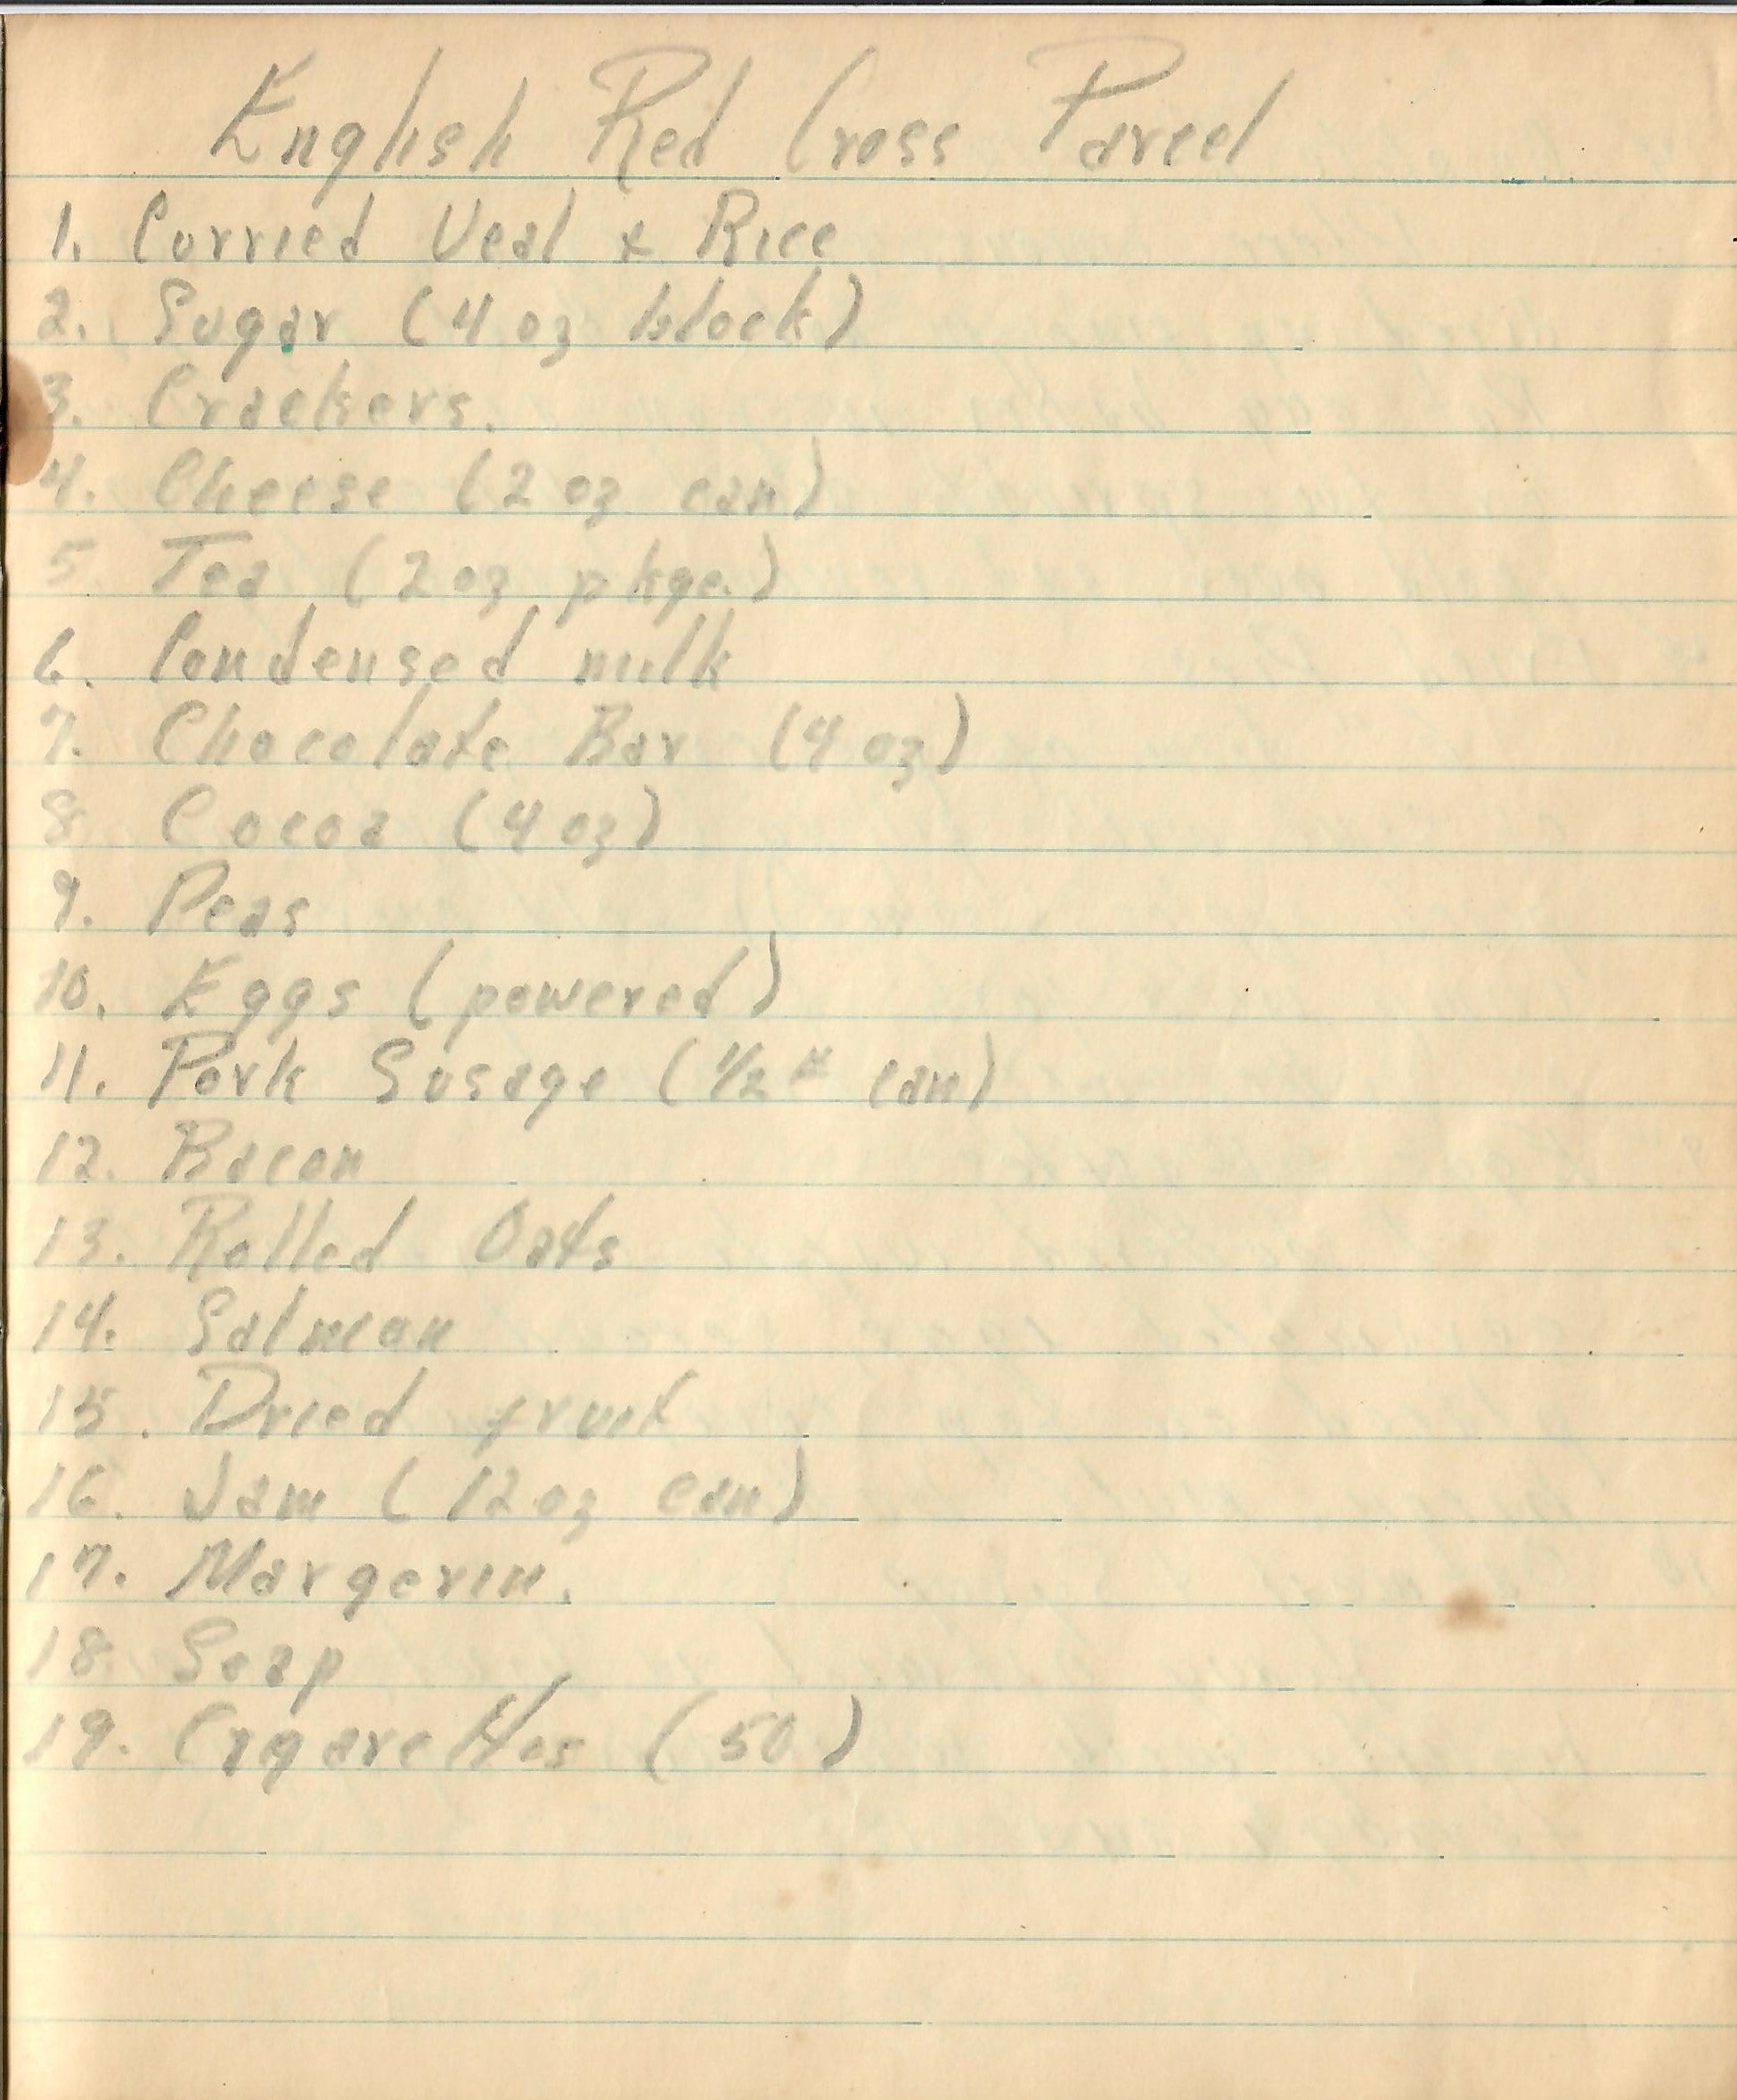 English Red Cross Parcel
1. Curried Veal + Rice
2. Sugar (4 oz block)
3. Crackers.
4. Cheese (2 oz can)
5. Tea (2 oz pkge.)
6. Condensed milk
7. Chocolate Bar (4 oz)
8 Cocoa (4 oz)
9. Peas
10. Eggs (powered)
11. Pork Susage (1/2 # can)
12. Bacon
13. Rolled Oats
14. Salmon
15. Dried fruit
16. Jam (12 oz can)
17. Margerin.
18 Soap
19. Cigarettes (50)